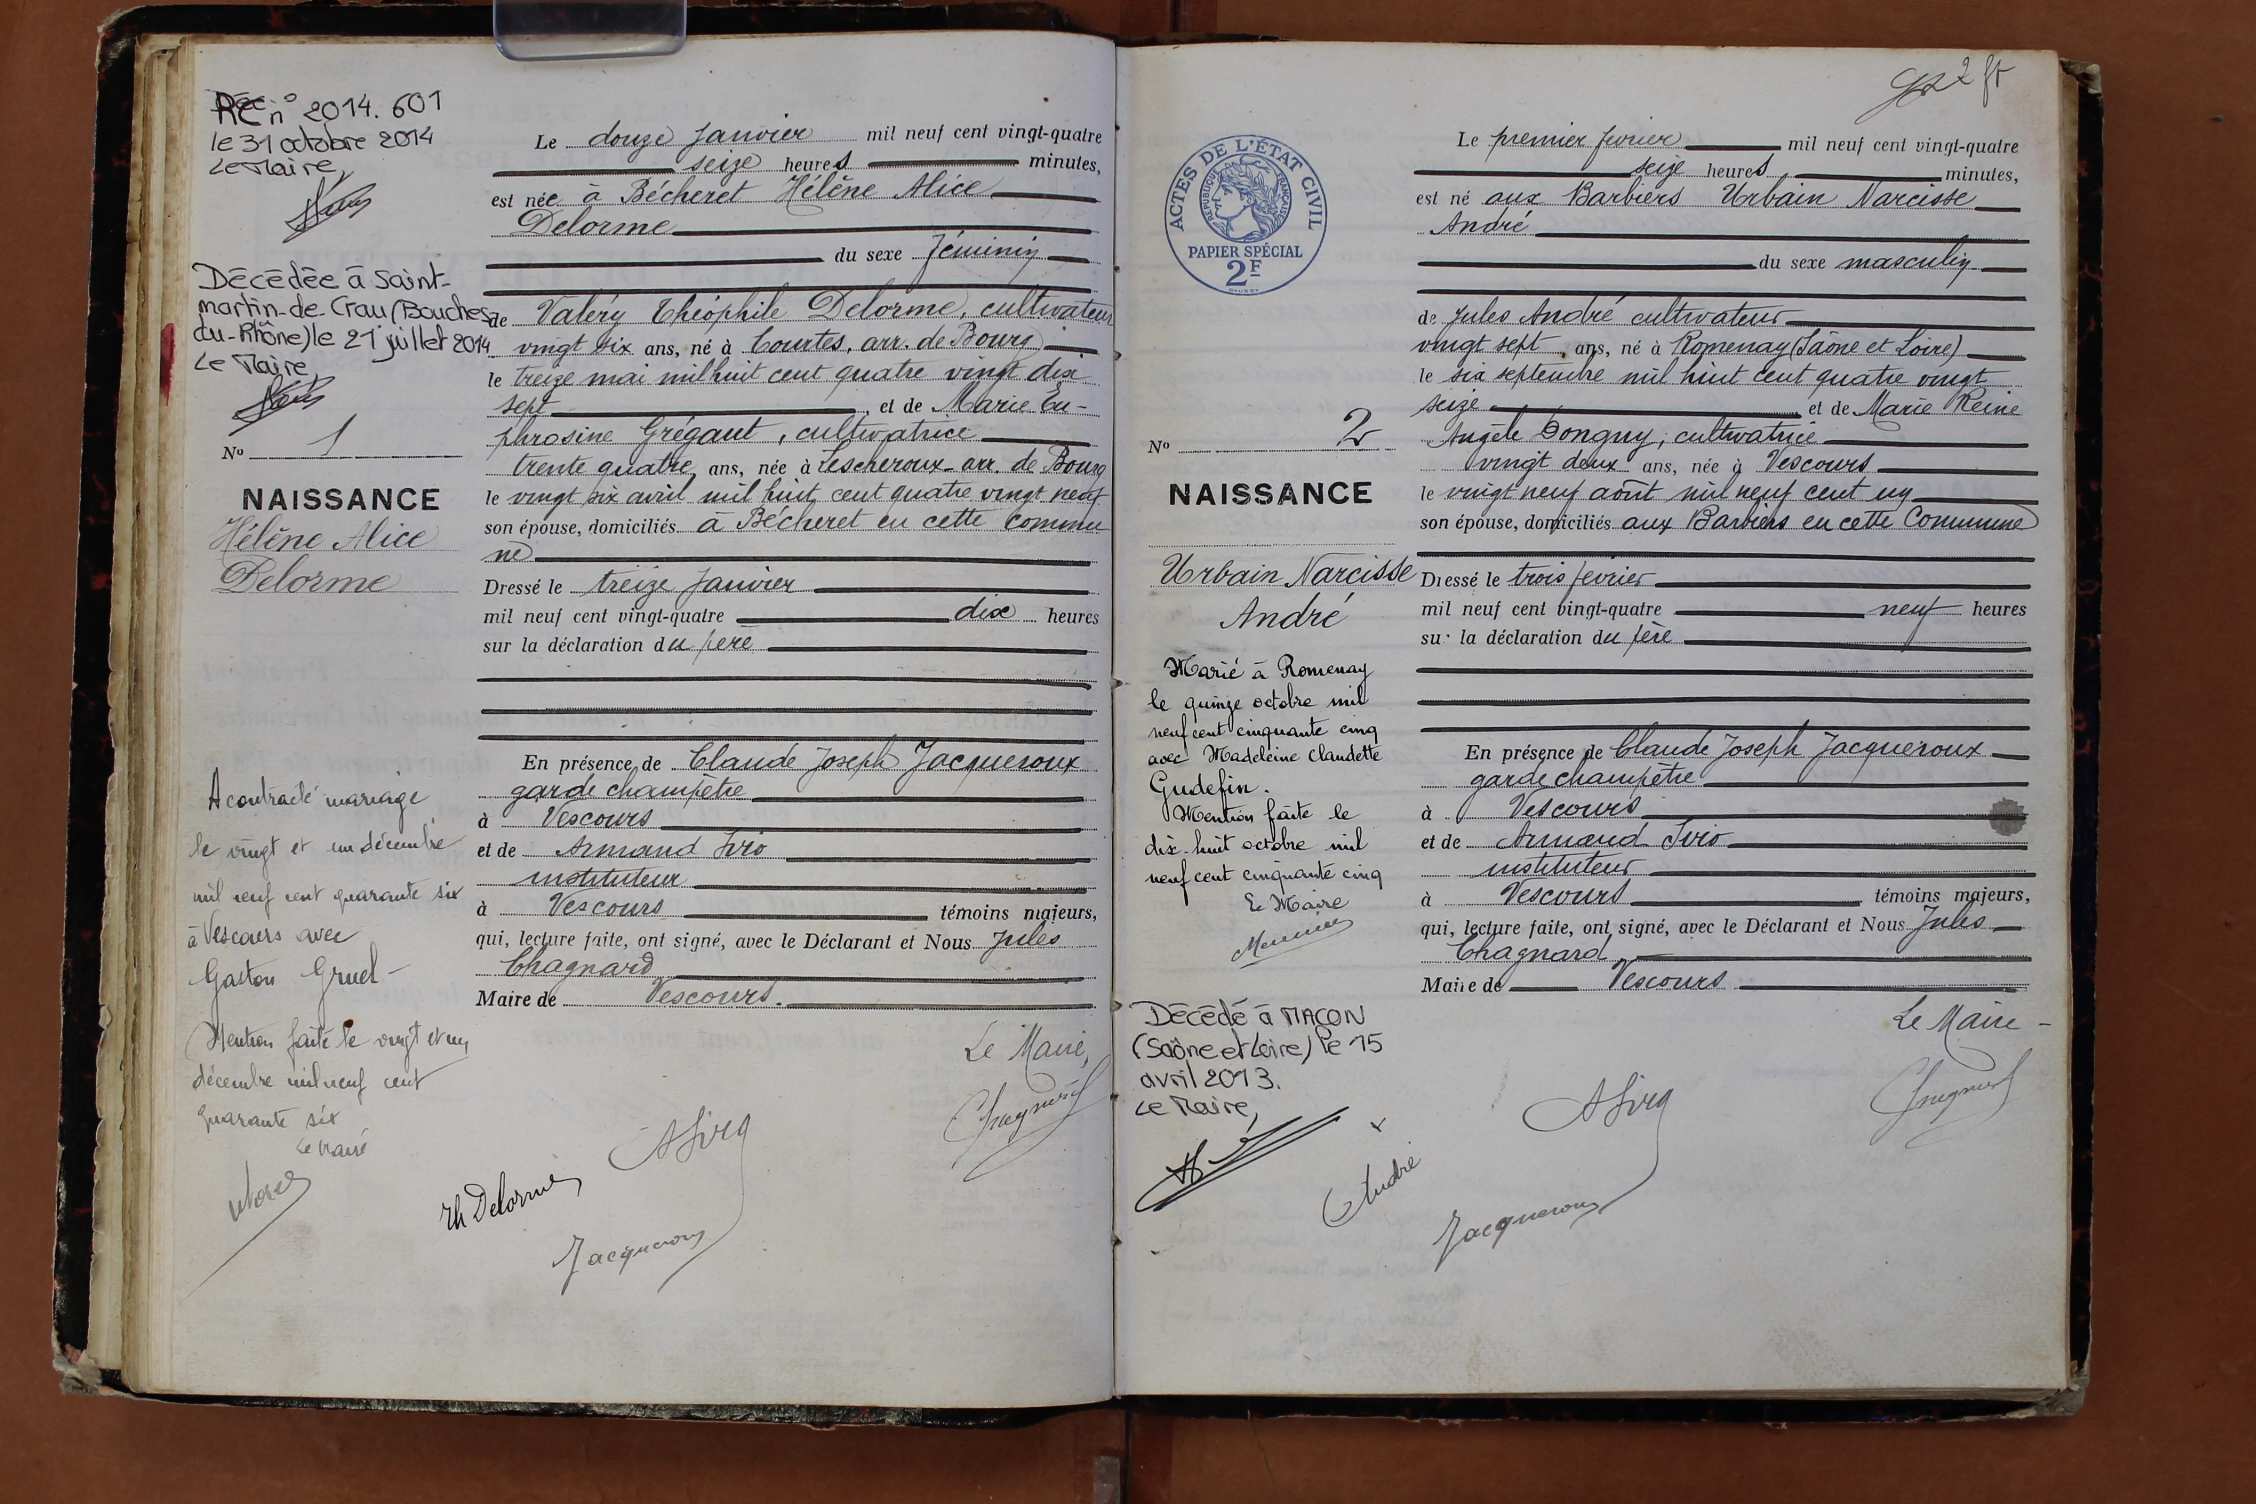 RC n° 2014.601
le 31 octobre 2014
Le Maire,
Décédée à Saint-
martin-de-Crau (Bouches-
du-Rhône) le 21 juillet 2014
Le Maire,
No 1
NAISSANCE
Hélène Alice
Delorme
A contracté mariage
le vingt et un décembre
mil neuf cent quarante six
à Vescours avec
Gaston Gruel
Mention faite le vingt et un
décembre mil neuf cent
quarante six
Le Maire
Le douze Janvier mil neuf cent vingt-quatre
seize heures minutes,
est née à Bécheret Hélène Alice
Delorme
du sexe féminin
de Valéry Théophile Delorme, cultivateur
vingt six ans, né à Courtes, arr. de Bourg
le treize mai mil huit cent quatre vingt dix
sept, et de Marie Eu-
phrosine Grégaut, cultivatrice
trente quatre ans, née à Lescheroux arr. de Bourg
le vingt six avril mil huit cent quatre vingt neuf
son épouse, domiciliés à Bécheret en cette commu
ne
Dressé le treize Janvier
mil neuf cent vingt-quatre dix heures
sur la déclaration du père
En présence de Claude Joseph Jacqueroux
garde champêtre
à Vescours
et de Armand
instituteur
à Vescours témoins majeurs,
qui, lecture faite, ont signé, avec le Déclarant et Nous Jules
Chagnard
Maire de Vescours.
Le Maire,
Chagnard
Th Delorme
Jacqueroux
2 F
ACTES DE L'ÉTAT CIVIL
RÉPUBLIQUE FRANÇAISE
PAPIER SPÉCIAL
2F
No 2
NAISSANCE
Urbain Narcisse
André
Marié à Romenay
le quinze octobre mil
neuf cent cinquante cinq
avec Madeleine Claudette
Gudefin.
Mention faite le
dix-huit octobre mil
neuf cent cinquante cinq
Le Maire
Décédé à MACON
(Saône et Loire) le 15
avril 2013.
Le Maire,
Le premier février mil neuf cent vingt-quatre
seize heures minutes,
est né aux Barbiers Urbain Narcisse
André
du sexe masculin
de Jules André cultivateur
vingt sept ans, né à Romenay (Saône et Loire)
le six septembre mil huit cent quatre vingt
seize et de Marie Reine
Angèle Donguy, cultivatrice
vingt deux ans, née à Vescours
le vingt neuf août mil neuf cent un
son épouse, domiciliés aux Barbiers en cette Commune
Dressé le trois février
mil neuf cent vingt-quatre neuf heures
sur la déclaration du père
En présence de Claude Joseph Jacqueroux
garde champêtre
à Vescours
et de Armand
instituteur
à Vescours témoins majeurs,
qui, lecture faite, ont signé, avec le Déclarant et Nous Jules
Chagnard
Maire de Vescours
Le Maire
Chagnard
André
Jacqueroux